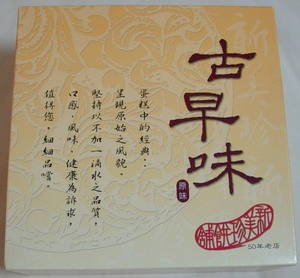 古早味
原味
蛋糕中的經典：
呈現原始之風貌。
堅持以不加一滴水之品質，
口感、風味、健康為訴求，
值得您，細細品嚐。
50年老店